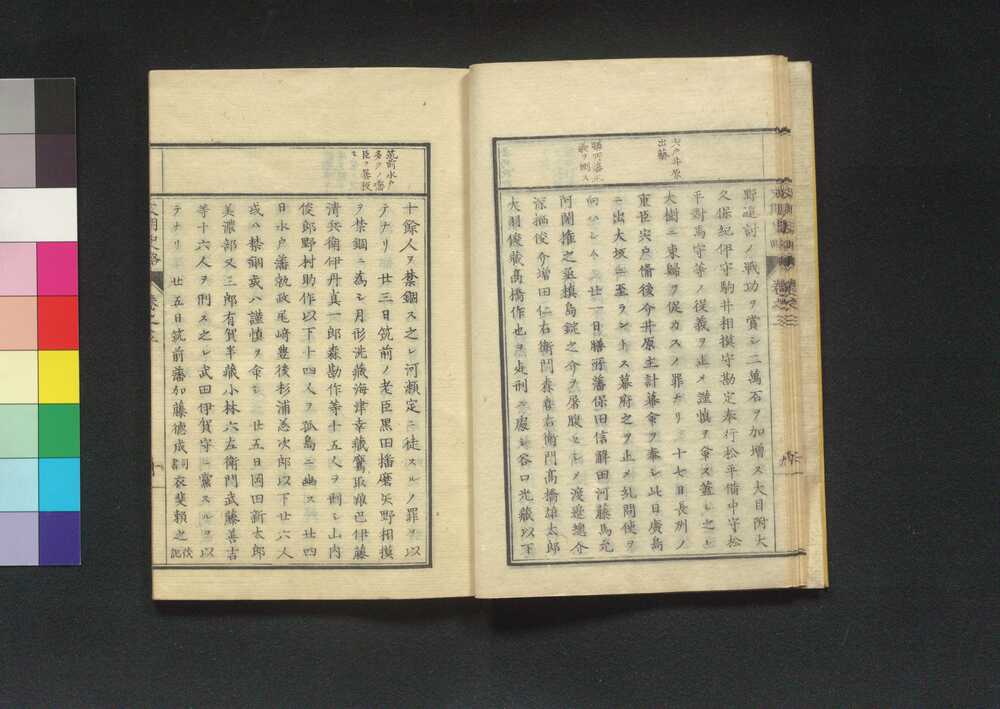 宍戸井原
出藝
膳所藩士
數ヲ刑ス
野追討ノ戰功ヲ賞シ二萬石ヲ加增ス大目附大
久保紀伊守駒井相摸守勘定奉行松平備中守松
平對馬守等ノ從義ヲ止メ謹愼ヲ命ス蓋シ之レ
大樹ニ東歸ヲ促カスノ罪ナリ 十七日長州ノ
重臣宍戸備後今井原主計幕命ヲ奉シ此日廣島
ヲ出大坂ニ至ラントス幕府之ヲ止メ糺問使ヲ
向ハシム 廿一日膳所藩保田信解田河藤馬允
阿閉權之丞槙島錠之介ヲ屠腹セシメ渡邉總介
深栖俊介增田仁右衛門森喜右衛門高橋雄太郎
大羽俊藏高橋作也ヲ處刑ニ處シ谷口光藏以下
筑前水戸
十餘人ヲ禁錮ス之レ河瀬定ニ徒スルノ罪ヲ以
テナリ 廿三日筑前ノ老臣黒田播磨矢野相摸
ヲ禁錮ニ為シ月形洗藏海津幸藏鷹取養巴伊藤
清兵衛伊丹真一郎森勘作等十五人ヲ刑シ山内
俊郎野村助作以下十四人ヲ孤島ニ幽ス 廿四
日水戸藩執政尾﨑豊後杉浦忞次郎以下廿六人
或ハ禁錮或ハ謹愼ヲ命シ 廿五日岡田新太郎
美濃部又三郎有賀半藏小林六左衛門武藤善吉
等十六人ヲ刑ス之レ武田伊賀守ニ黨スルヲ以
テナリ 廿五日筑前藩加藤德成衣斐賴之